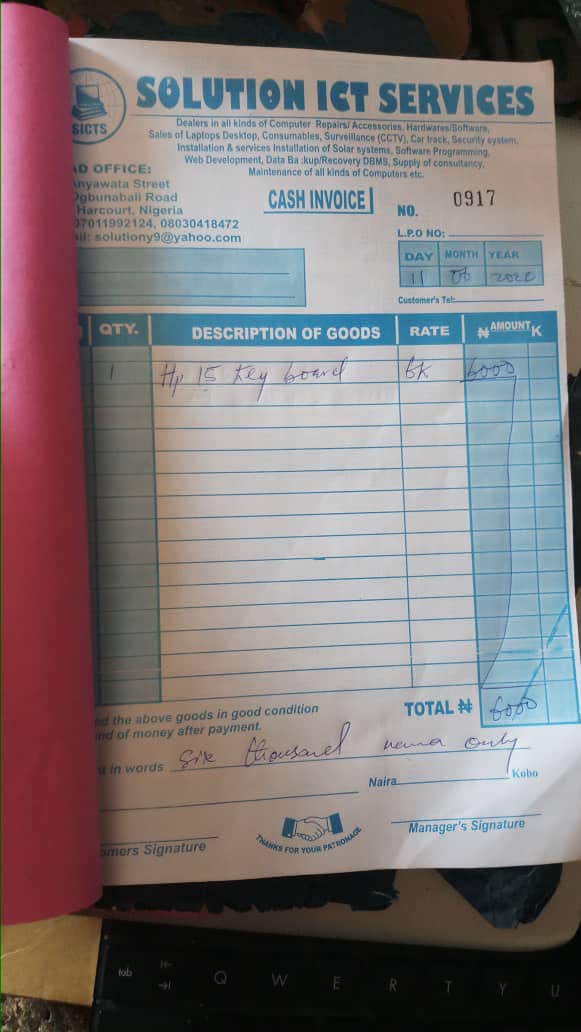 SOLUTION ICT SERVICES
SICTS
Dealers in all kinds of Computer Repairs/ Accessories, Hardwares/Software,
Sales of Laptops Desktop, Consumables, Surveillance (CCTV), Car track, Security system,
Installation & services Installation of Solar systems, Software Programming,
Web Development, Data Ba:kup/Recovery DBMS, Supply of consultancy,
Maintenance of all kinds of Computers etc.
AD OFFICE:
nyawata Street
Ogbunabali Road
Harcourt, Nigeria
07011992124, 08030418472
ail: solutiony9@yahoo.com
CASH INVOICE
NO. 0917
L.P.O NO:
DAY MONTH YEAR
11 06 2022
Customer's Tel:
QTY. DESCRIPTION OF GOODS RATE ₦ AMOUNT K
1 Hp 15 Key board 6K 6000
ed the above goods in good condition
and of money after payment.
TOTAL ₦ 6000
nt in words Six thousand naira only
Naira Kobo
omers Signature
THANKS FOR YOUR PATRONAGE
Manager's Signature
tab Q W E R T Y U